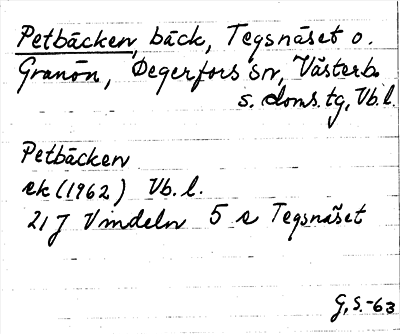 Petbäcken, bäck, Tegsnäset o.
Granön, Degerfors sn, Västerb.
s. doms. tg, Vb. l.
Petbäcken
ek (1962) Vb. l.
21 J Vindeln 5 e Tegsnäset
G, S. -63